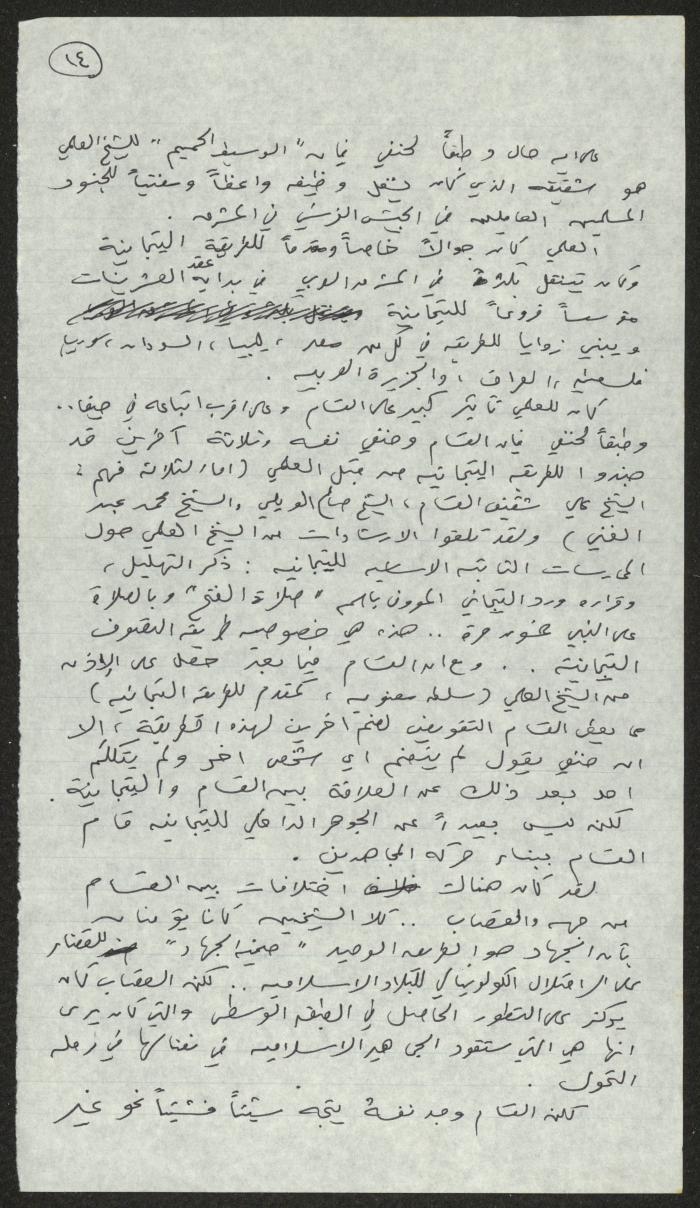 ١٤
على اية حال وطبقاً لحنفي فإن "الوسيط الحميم" للشيخ العلمي
هو شقيقه الذي كان يشغل وظيفة واعظاً ومفتياً للجنود
المسلمين العاملين في الجيش الفرنسي في المشرق .
العلمي كان جوالاً خاصاً ومقدماً للطريقة التيجانية
وكان يتنقل في المشرق العربي في بداية عقد العشرينات
مؤسساً فروعاً للتيجانية
ويبني زوايا للطريقة في كل من مصر ، ليبيا ، السودان ، سوريا
فلسطين ، العراق ، والجزيرة العربية .
كان للعلمي تأثير كبير على القسام وعلى اقرب اتباعه في حيفا ..
وطبقاً لحنفي فإن القسام وحنفي نفسه وثلاثة آخرين قد
جندوا للطريقة التيجانية من قبل العلمي (اما الثلاثة فهم :
الشيخ علي شقيق القسام ، الشيخ صالح الويلي والشيخ محمد عبد
الغني) ولقد تلقوا الارشادات من الشيخ العلمي حول
الممارسات الثابتة الاساسية للتيجانية : ذكر التهليل ،
وقراءة ورد التيجاني المعروف باسم "صلاة الفتح" وبالصلاة
على النبي عشرة مرة .. هذه هي خصوصية طريقة التصوف
التيجانية .. ومع ان القسام فيما بعد حصل على الإذن
من الشيخ العلمي (سلطة معنوية ، كمقدم للطريقة التيجانية)
مما يعطي القسام التفويض لضم آخرين لهذه الطريقة ، الا
ان حنفي يقول لم ينضم اي شخص اخر ولم يتكلم
احد بعد ذلك عن العلاقة بين القسام والتيجانية .
لكن ليس بعيداً عن الجوهر الداخلي للتيجانية قام
القسام ببناء حركة المجاهدين .
لقد كان هناك اختلافات بين القسام
من جهة والقصاب .. كلا الشيخين كانا يؤمنان
بأن الجهاد هو الطريق الوحيد "حتمية الجهاد" للقضاء
على الاحتلال الكولونيالي للبلاد الاسلامية .. لكن القصاب كان
يركز على التطور الحاصل في الطبقة الوسطى والتي كان يرى
انها هي التي ستقود الجماهير الاسلامية في نضالها في مرحلة
التحول .
لكن القسام وجد نفسه يتجه شيئاً فشيئاً نحو غير